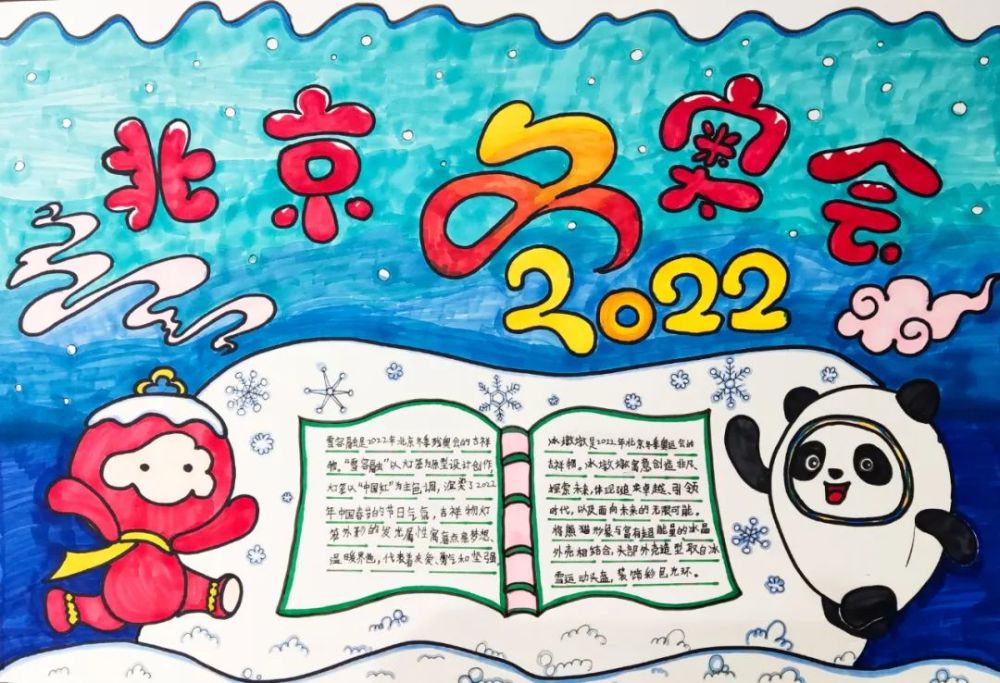 北京冬奥会
2022
雪容融是2022年北京冬季残奥会的吉祥
物。“雪容融”以灯笼为原型设计创作,
灯笼以“中国红”为主色调,渲染了2022
年中国春节的节日气氛,吉祥物灯
笼外形的发光属性寓意点亮梦想、
温暖世界,代表着友爱、勇气和坚强
冰墩墩是2022年北京冬季奥运会的
吉祥物。冰墩墩寓意创造非凡、
探索未来,体现追求卓越、引领
时代,以及面向未来的无限可能。
将熊猫形象与富有超能量的冰晶
外壳相结合,头部外壳造型取自冰
雪运动头盔,装饰彩色光环。